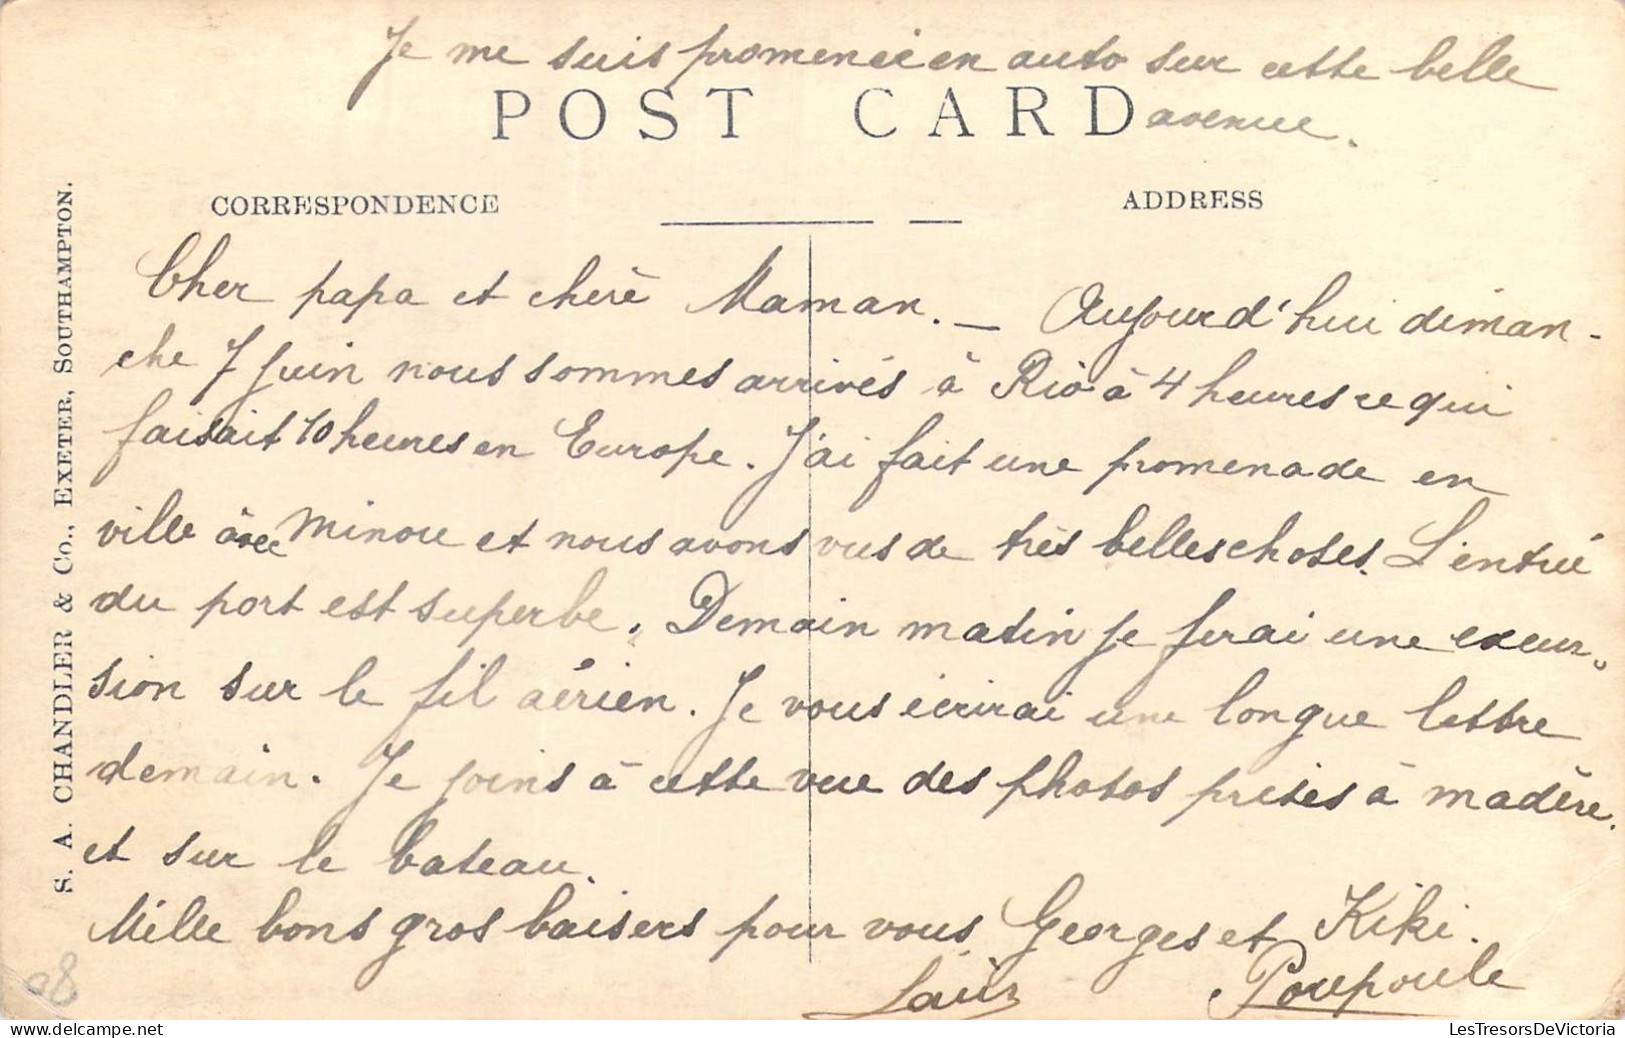 Je me suis promenée en auto sur cette belle
avenue.
POST CARD
CORRESPONDENCE
ADDRESS
S. A. CHANDLER & Co., EXETER, SOUTHAMPTON.
Cher papa et chère Maman. — Aujourd'hui diman-
che 7 Juin nous sommes arrivés à Rio à 4 heures ce qui
faisait 10 heures en Europe. J'ai fait une promenade en
ville àvec Minou et nous avons vus de très belles choses. L'entrée
du port est superbe. Demain matin je ferai une excur-
sion sur le fil aérien. Je vous écrirai une longue lettre
demain. Je joins à cette vue des photos prises à madère.
et sur le bateau.
Mille bons gros baisers pour vous Georges et Kiki.
Poupoule
08
LesTresorsDeVictoria